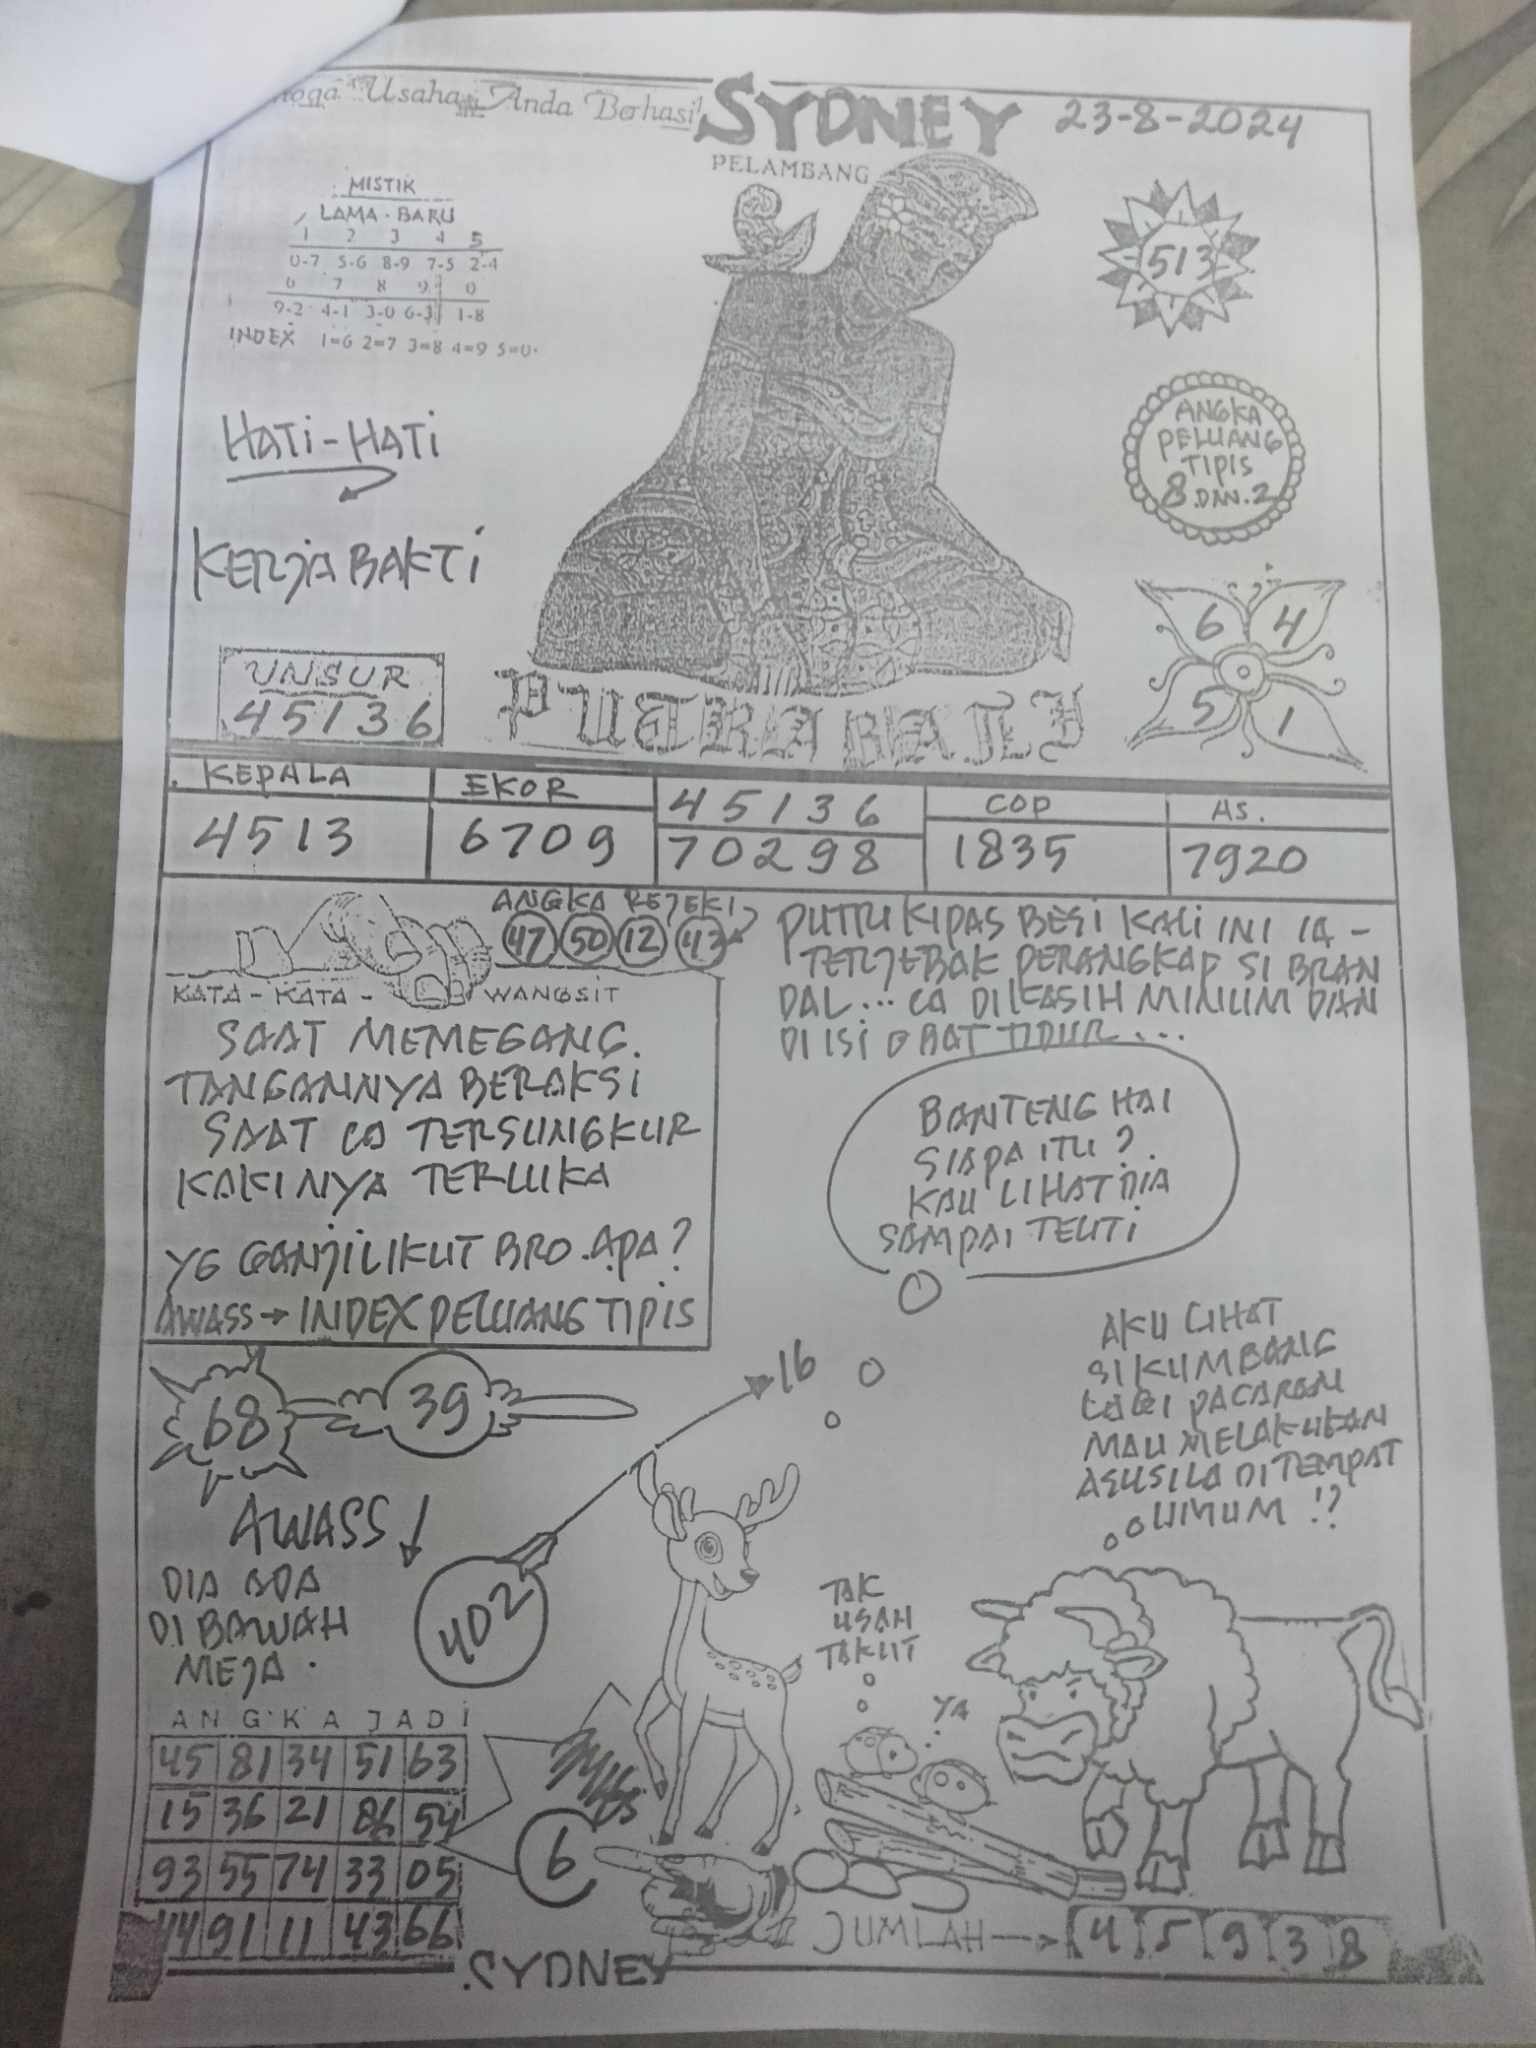 Usaha Anda Berhasil
SYDNEY 23-8-2024
PELAMBANG
MISTIK
LAMA - BARU
1 2 3 4 5
0-7 5-6 8-9 7-5 2-4
6 7 8 9 0
9-2 4-1 3-0 6-3 1-8
INDEX 1=6 2=7 3=8 4=9 5=0
513
HATI-HATI
KERJA BAKTI
ANGKA
PELUANG
TIPIS
8 DAN 2
6 4
5 1
UNSUR
45136
PUTRA BALI
KEPALA
4513
EKOR
6709
45136
70298
COP
1835
AS.
7920
ANGKA REJEKI
47 50 12 43
KATA - KATA - WANGSIT
SAAT MEMEGANG
TANGANNYA BERAKSI
SAAT ia TERSUNGKUR
KAKINYA TERLUKA
YG GANJIL IKUT BRO. APA?
AWASS → INDEX PELUANG TIPIS
PUTRI KIPAS BESI KALI INI IA -
TERJEBAK PERANGKAP SI BRAN
DAL... ia DI KASIH MINUM DAN
DI ISI OBAT TIDUR...
BANTENG HAI
SIAPA ITU?
KAU LIHAT DIA
SAMPAI TELITI
AKU LIHAT
SI KUMBANG
LAGI PACARAN
MAU MELAKUKAN
ASUSILA DI TEMPAT
UMUM !?
68 39
16
AWASS
DIA ADA
DI BAWAH
MEJA.
402
TAK
USAH
TAKUT
YA
ANGKA JADI
45 81 34 51 63
15 36 21 86 54
93 55 74 33 05
44 91 11 43 66
6
JUMLAH → 4 5 9 3 8
SYDNEY